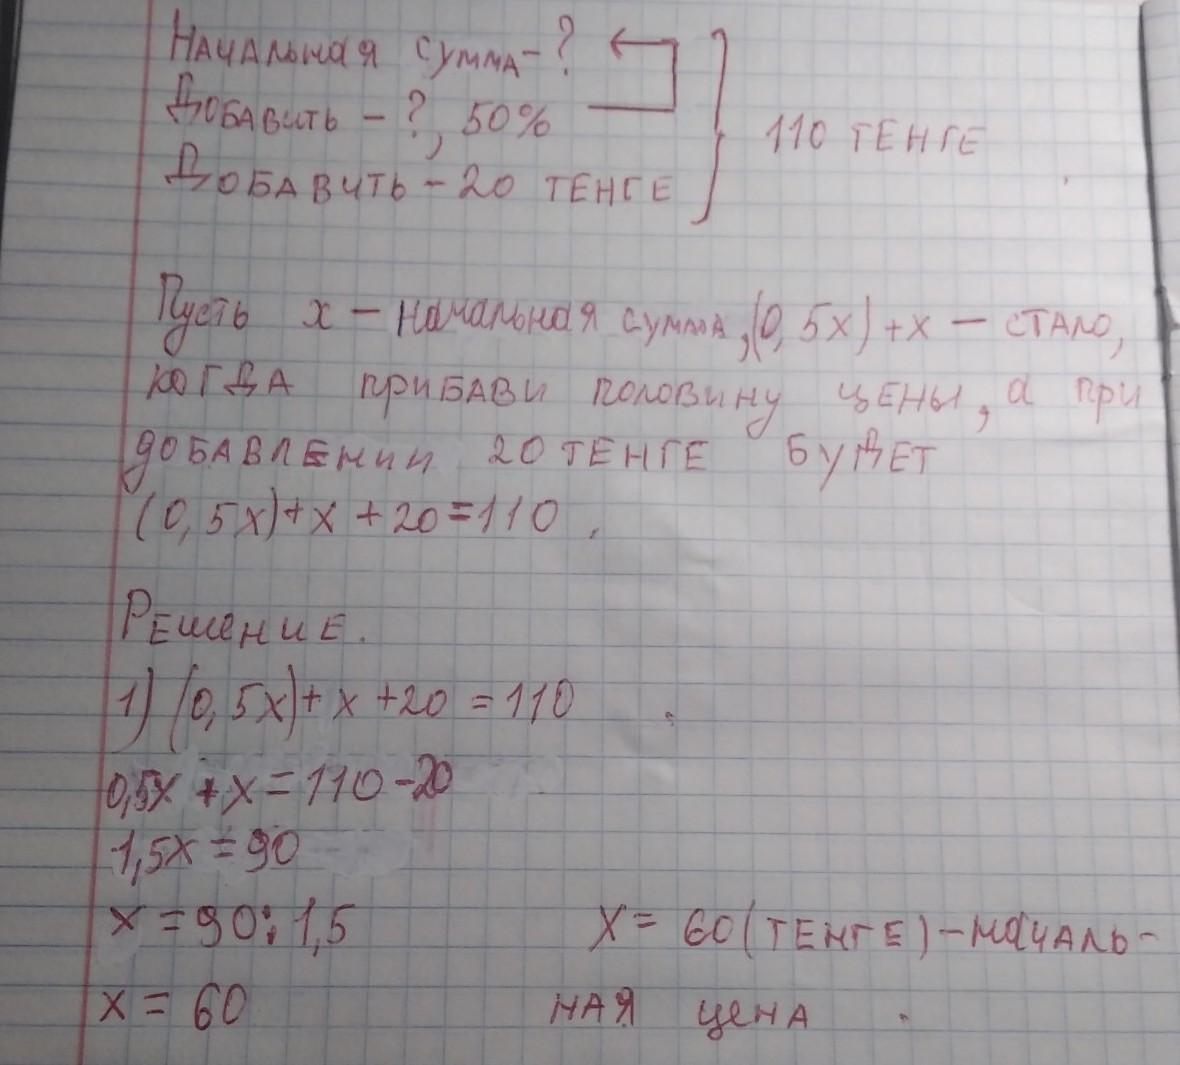 Начальная сумма - ?
Добавить - ?, 50%
Добавить - 20 тенге
110 тенге
Пусть x - начальная сумма, (0,5x)+x - стало,
когда прибави половину цены, а при
добавлении 20 тенге будет
(0,5x)+x+20=110.
Решение.
1) (0,5x)+x+20=110
0,5x+x=110-20
1,5x=90
x=90:1,5
x=60
x=60(тенге)-началь-
ная цена.